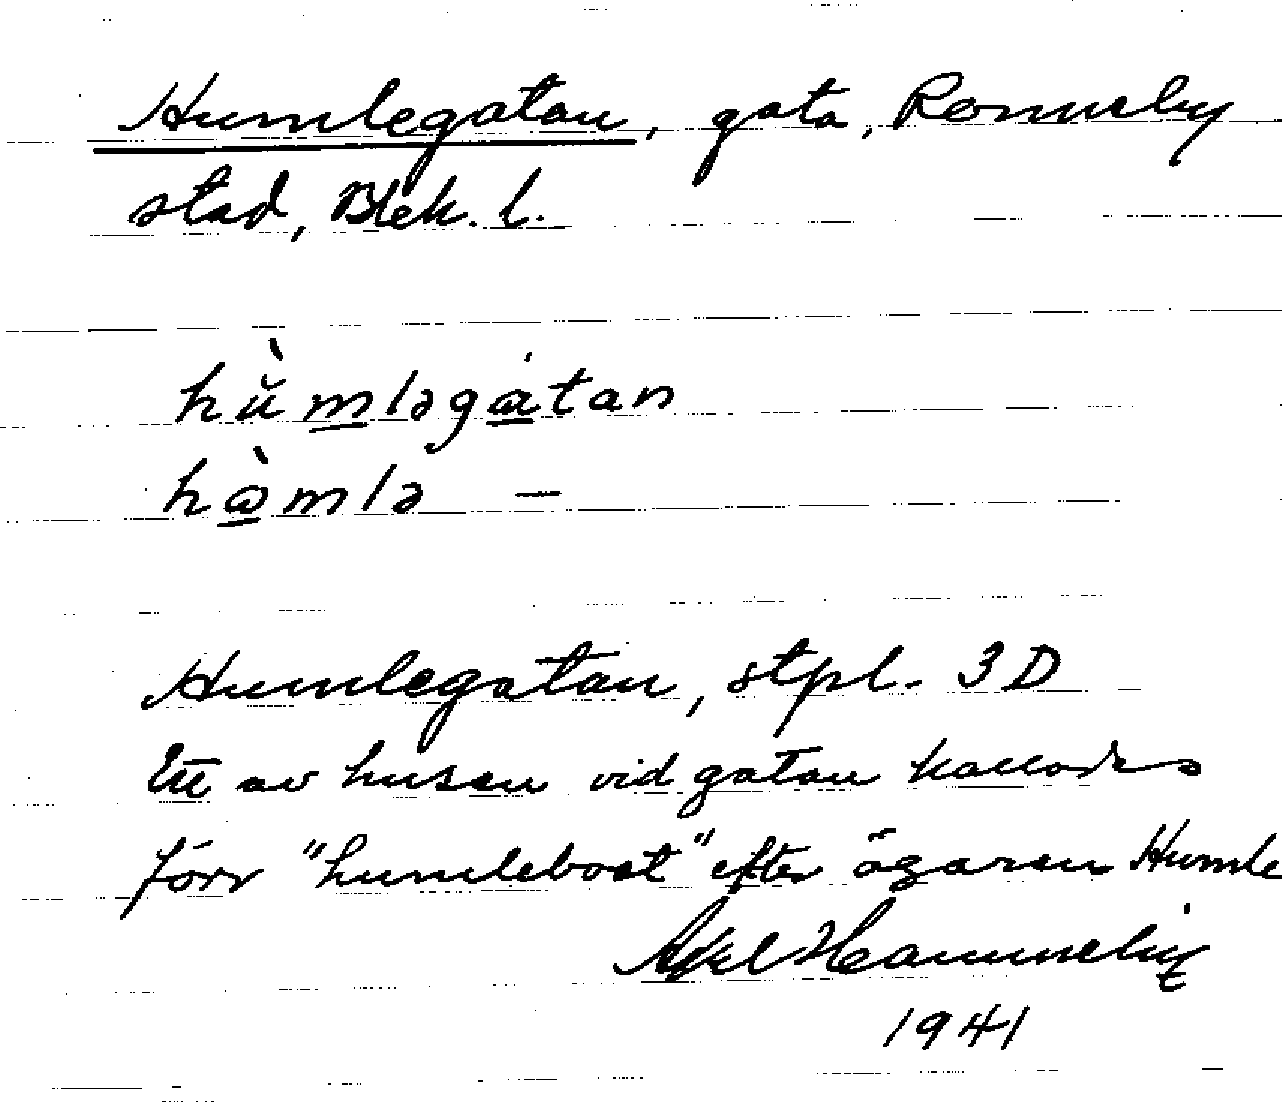 Humlegatan, gata, Ronneby
stad, Blek. l.
hŭ̀mləgátan
hàmlə —
Humlegatan, stpl. 3D
Ett av husen vid gatan kallades
förr "humleboat" efter ägaren Humle
Axel
1941